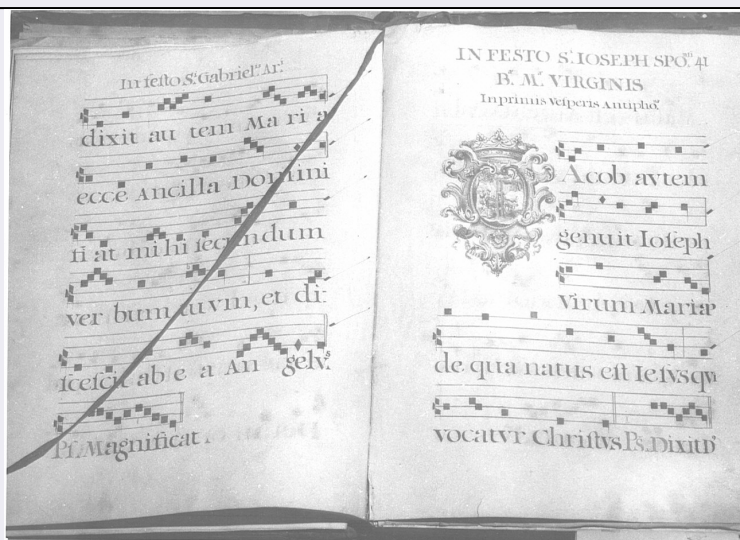 In festo S. Gabriel.. Ar.
dixit au tem Ma ri a
ecce Ancilla Domini
fi at mi hi secundum
ver bum tuvm, et di:
scescit ab e a An gelvs.
Ps. Magnificat.
IN FESTO S. IOSEPH SPO. 41
B. M. VIRGINIS
In primis Vesperis Antipho.
Acob avtem
genuit Ioseph
Virum Mariæ
de qua natus est Iesvs qvi
vocatvr Christvs Ps. Dixit D